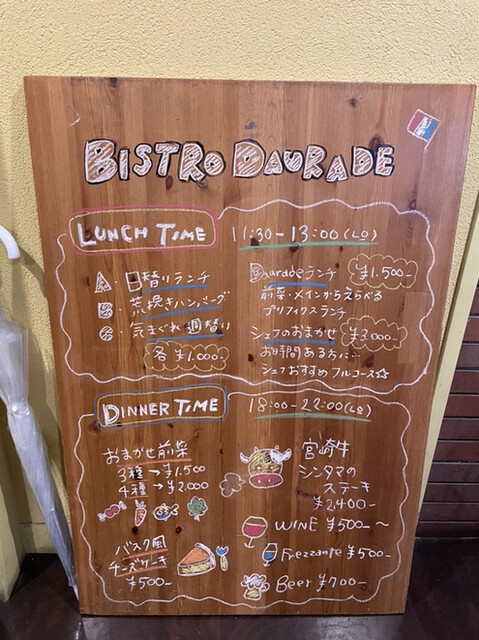 BISTRO DAURADE
LUNCH TIME
11:30-13:00(LO)
A・日替りランチ
B・煮焼きハンバーグ
C・気まぐれ週替り
各¥1.000-
Dauradeランチ ¥1.500-
前菜・メインからえらべる
プリフィクスランチ
シェフのおまかせ ¥3.000-
お時間あるちに…
シェフおすすめフルコース☆
DINNER TIME
18:00-22:00(LO)
おまかせ前菜
3種→¥1.500
4種→¥2.000
バスク風
チーズケーキ
¥500-
宮崎牛
シンタマの
ステーキ
¥2.400-
WINE ¥500-〜
Frezzante ¥500-
Beer ¥700-